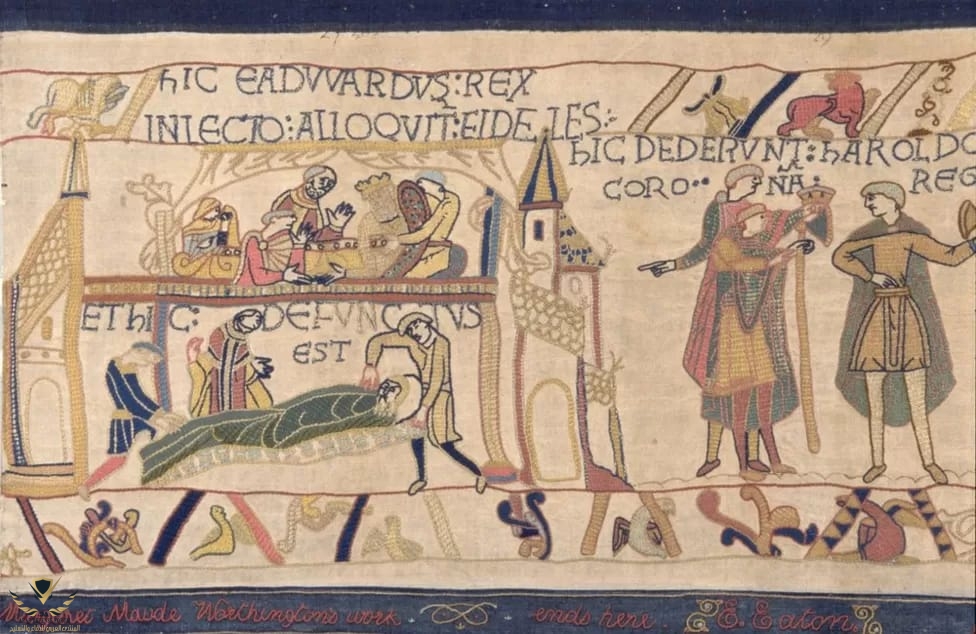 HIC EADVVARDVS:REX
INLECTO:ALLOQVIT:FIDELES:
HIC DEDERVNT:HAROLDO
CORO NA: REG
ET HIC: DEFVNCTVS
EST
Maude Worthington's work ends here E. Eaton.